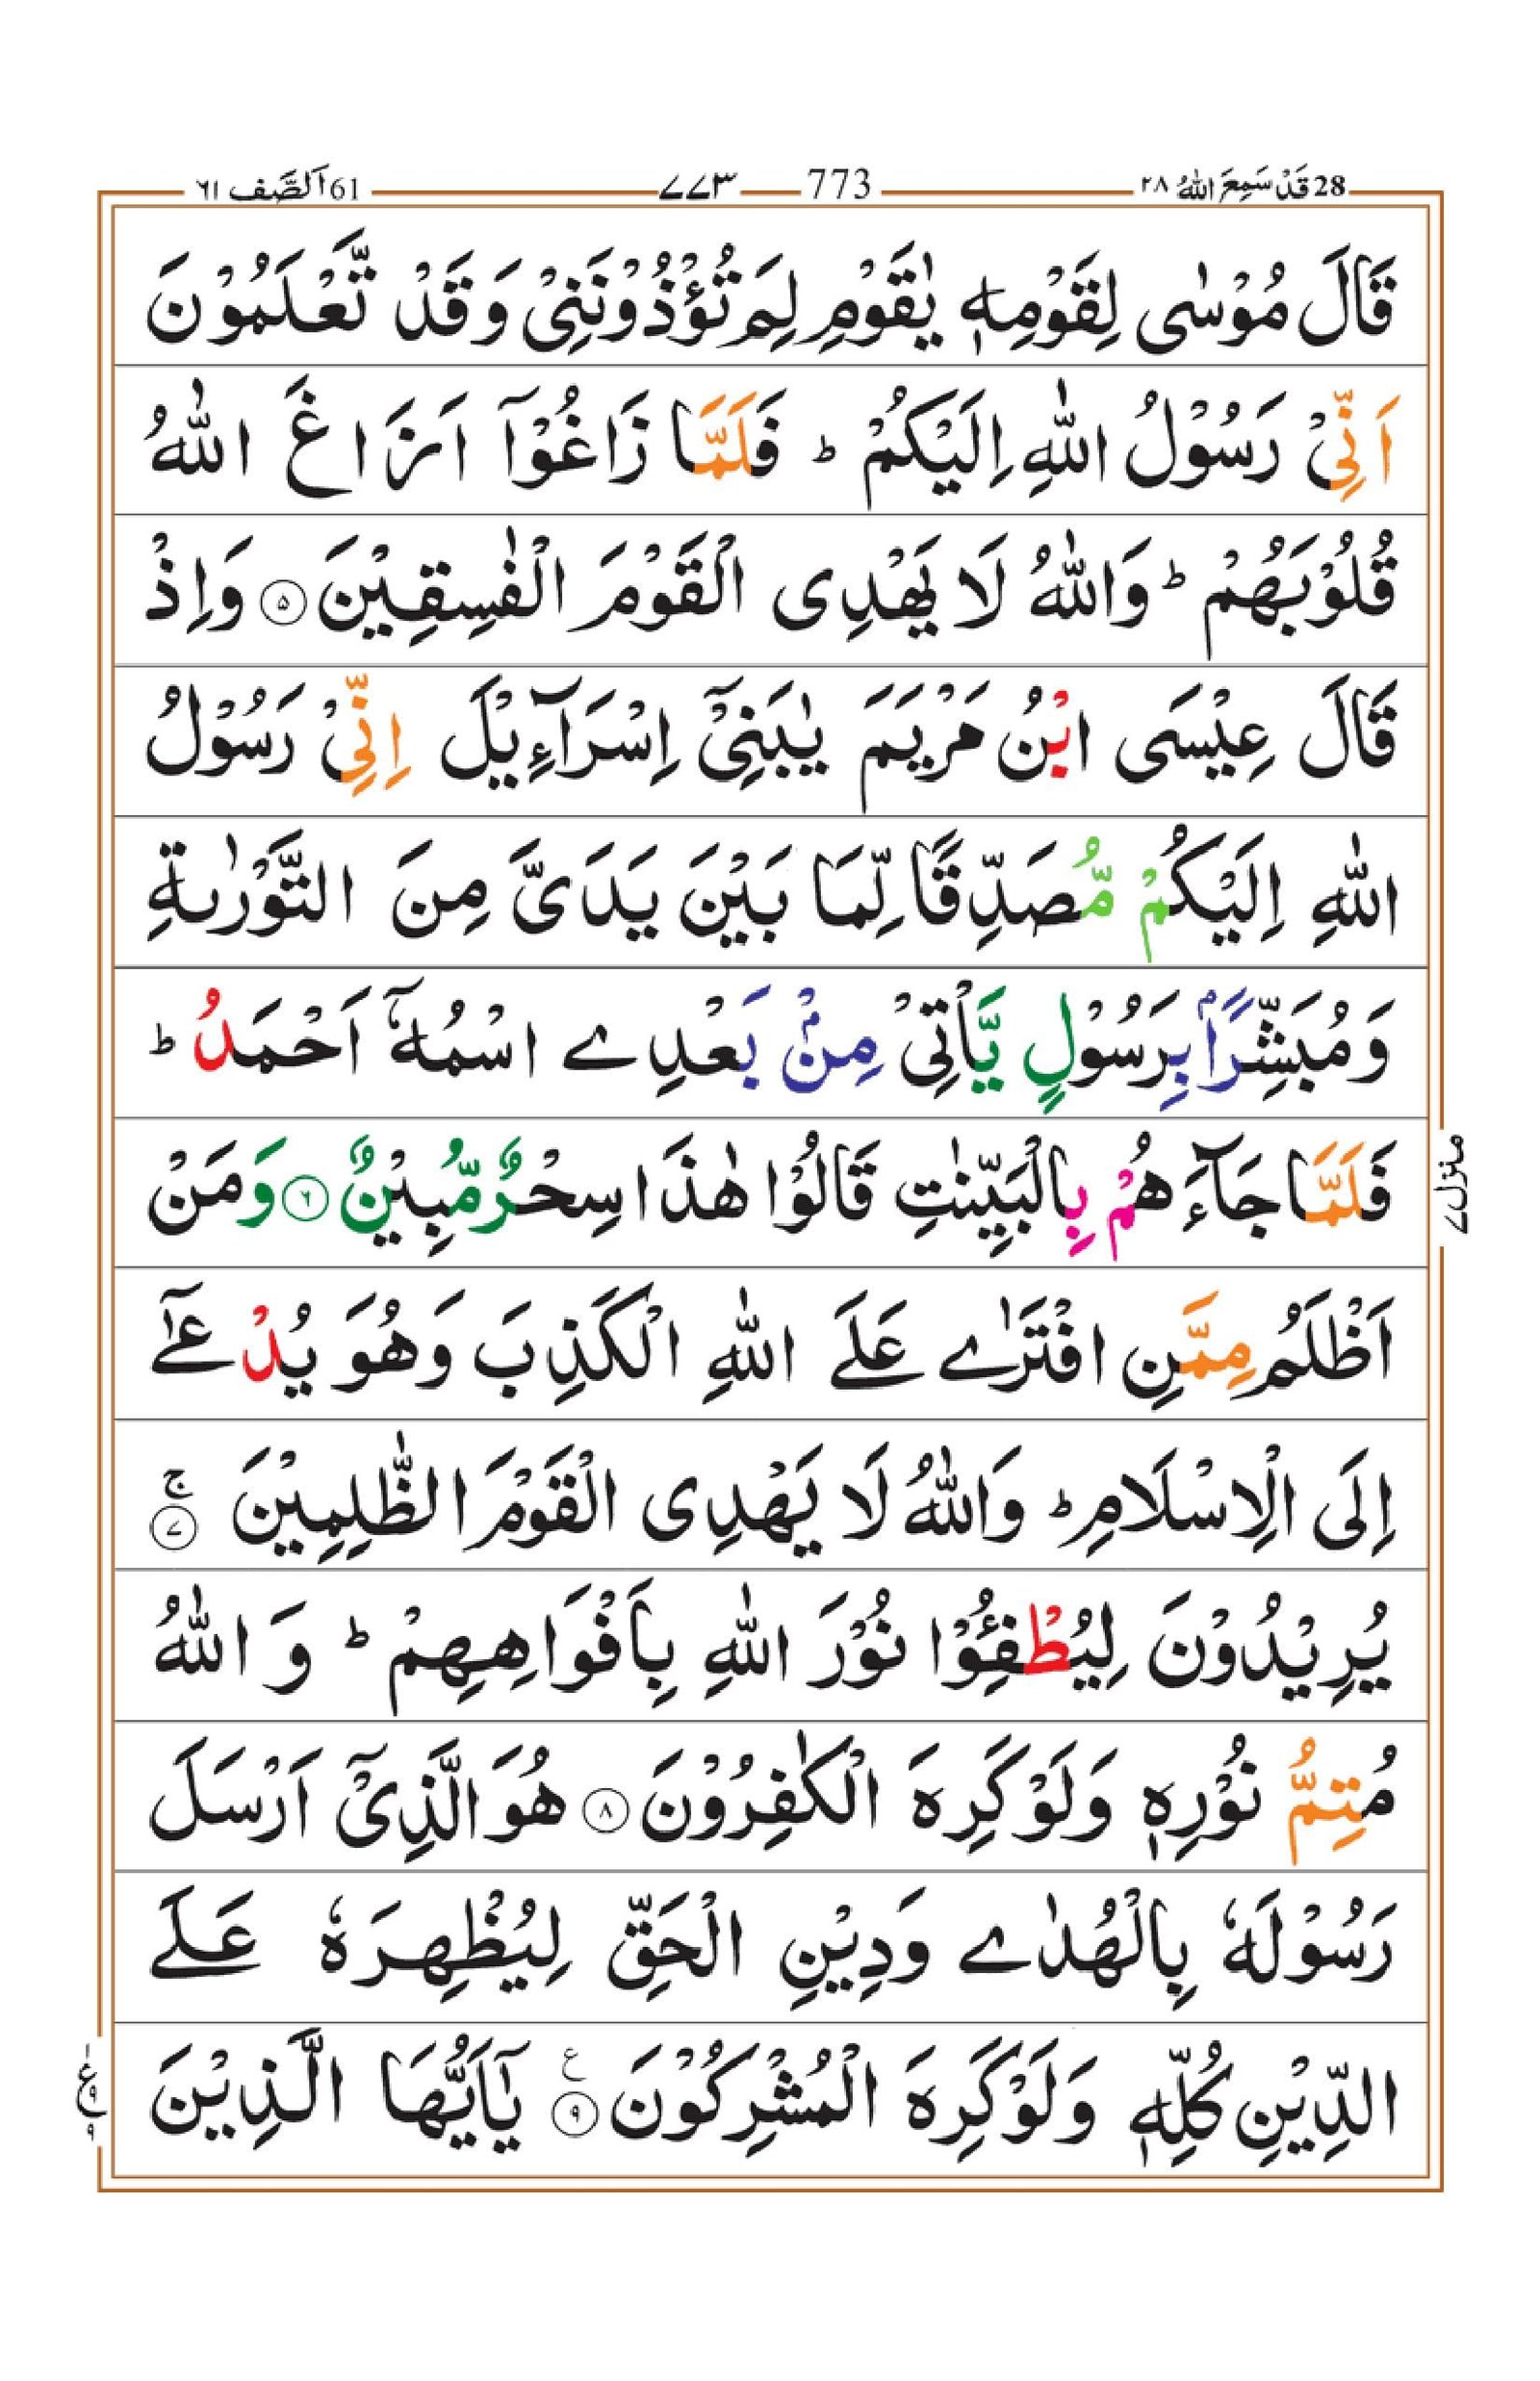 28 قَدْ سَمِعَ اللّٰهُ ٢٨ 773 ٧٧٣ 61 اَلصَّف ٦١
قَالَ مُوْسٰى لِقَوْمِهٖ يٰقَوْمِ لِمَ تُؤْذُوْنَنِىْ وَقَدْ تَّعْلَمُوْنَ
اَنِّىْ رَسُوْلُ اللّٰهِ اِلَيْكُمْ ؕ فَلَمَّا زَاغُوْۤا اَزَاغَ اللّٰهُ
قُلُوْبَهُمْ ؕ وَاللّٰهُ لَا يَهْدِى الْقَوْمَ الْفٰسِقِيْنَ ۝۵ وَاِذْ
قَالَ عِيْسَى ابْنُ مَرْيَمَ يٰبَنِىْۤ اِسْرَآءِيْلَ اِنِّىْ رَسُوْلُ
اللّٰهِ اِلَيْكُمْ مُّصَدِّقًا لِّمَا بَيْنَ يَدَىَّ مِنَ التَّوْرٰىةِ
وَمُبَشِّرًۢا بِرَسُوْلٍ يَّاْتِىْ مِنْۢ بَعْدِے اسْمُهٗۤ اَحْمَدُ ؕ
فَلَمَّا جَآءَهُمْ بِالْبَيِّنٰتِ قَالُوْا هٰذَا سِحْرٌ مُّبِيْنٌ ۝۶ وَمَنْ
اَظْلَمُ مِمَّنِ افْتَرٰے عَلَے اللّٰهِ الْكَذِبَ وَهُوَ يُدْعٰٓے
اِلَى الْاِسْلَامِ ؕ وَاللّٰهُ لَا يَهْدِى الْقَوْمَ الظّٰلِمِيْنَ ۚ ۝۷
يُرِيْدُوْنَ لِيُطْفِـُٔوْا نُوْرَ اللّٰهِ بِاَفْوَاهِهِمْ ؕ وَ اللّٰهُ
مُتِمُّ نُوْرِهٖ وَلَوْ كَرِهَ الْكٰفِرُوْنَ ۝۸ هُوَ الَّذِىْۤ اَرْسَلَ
رَسُوْلَهٗ بِالْهُدٰے وَدِيْنِ الْحَقِّ لِيُظْهِرَهٗ عَلَے
الدِّيْنِ كُلِّهٖ وَلَوْ كَرِهَ الْمُشْرِكُوْنَ ۝۹ ع يٰۤاَيُّهَا الَّذِيْنَ
منزل ٧
ع ٩ ٩